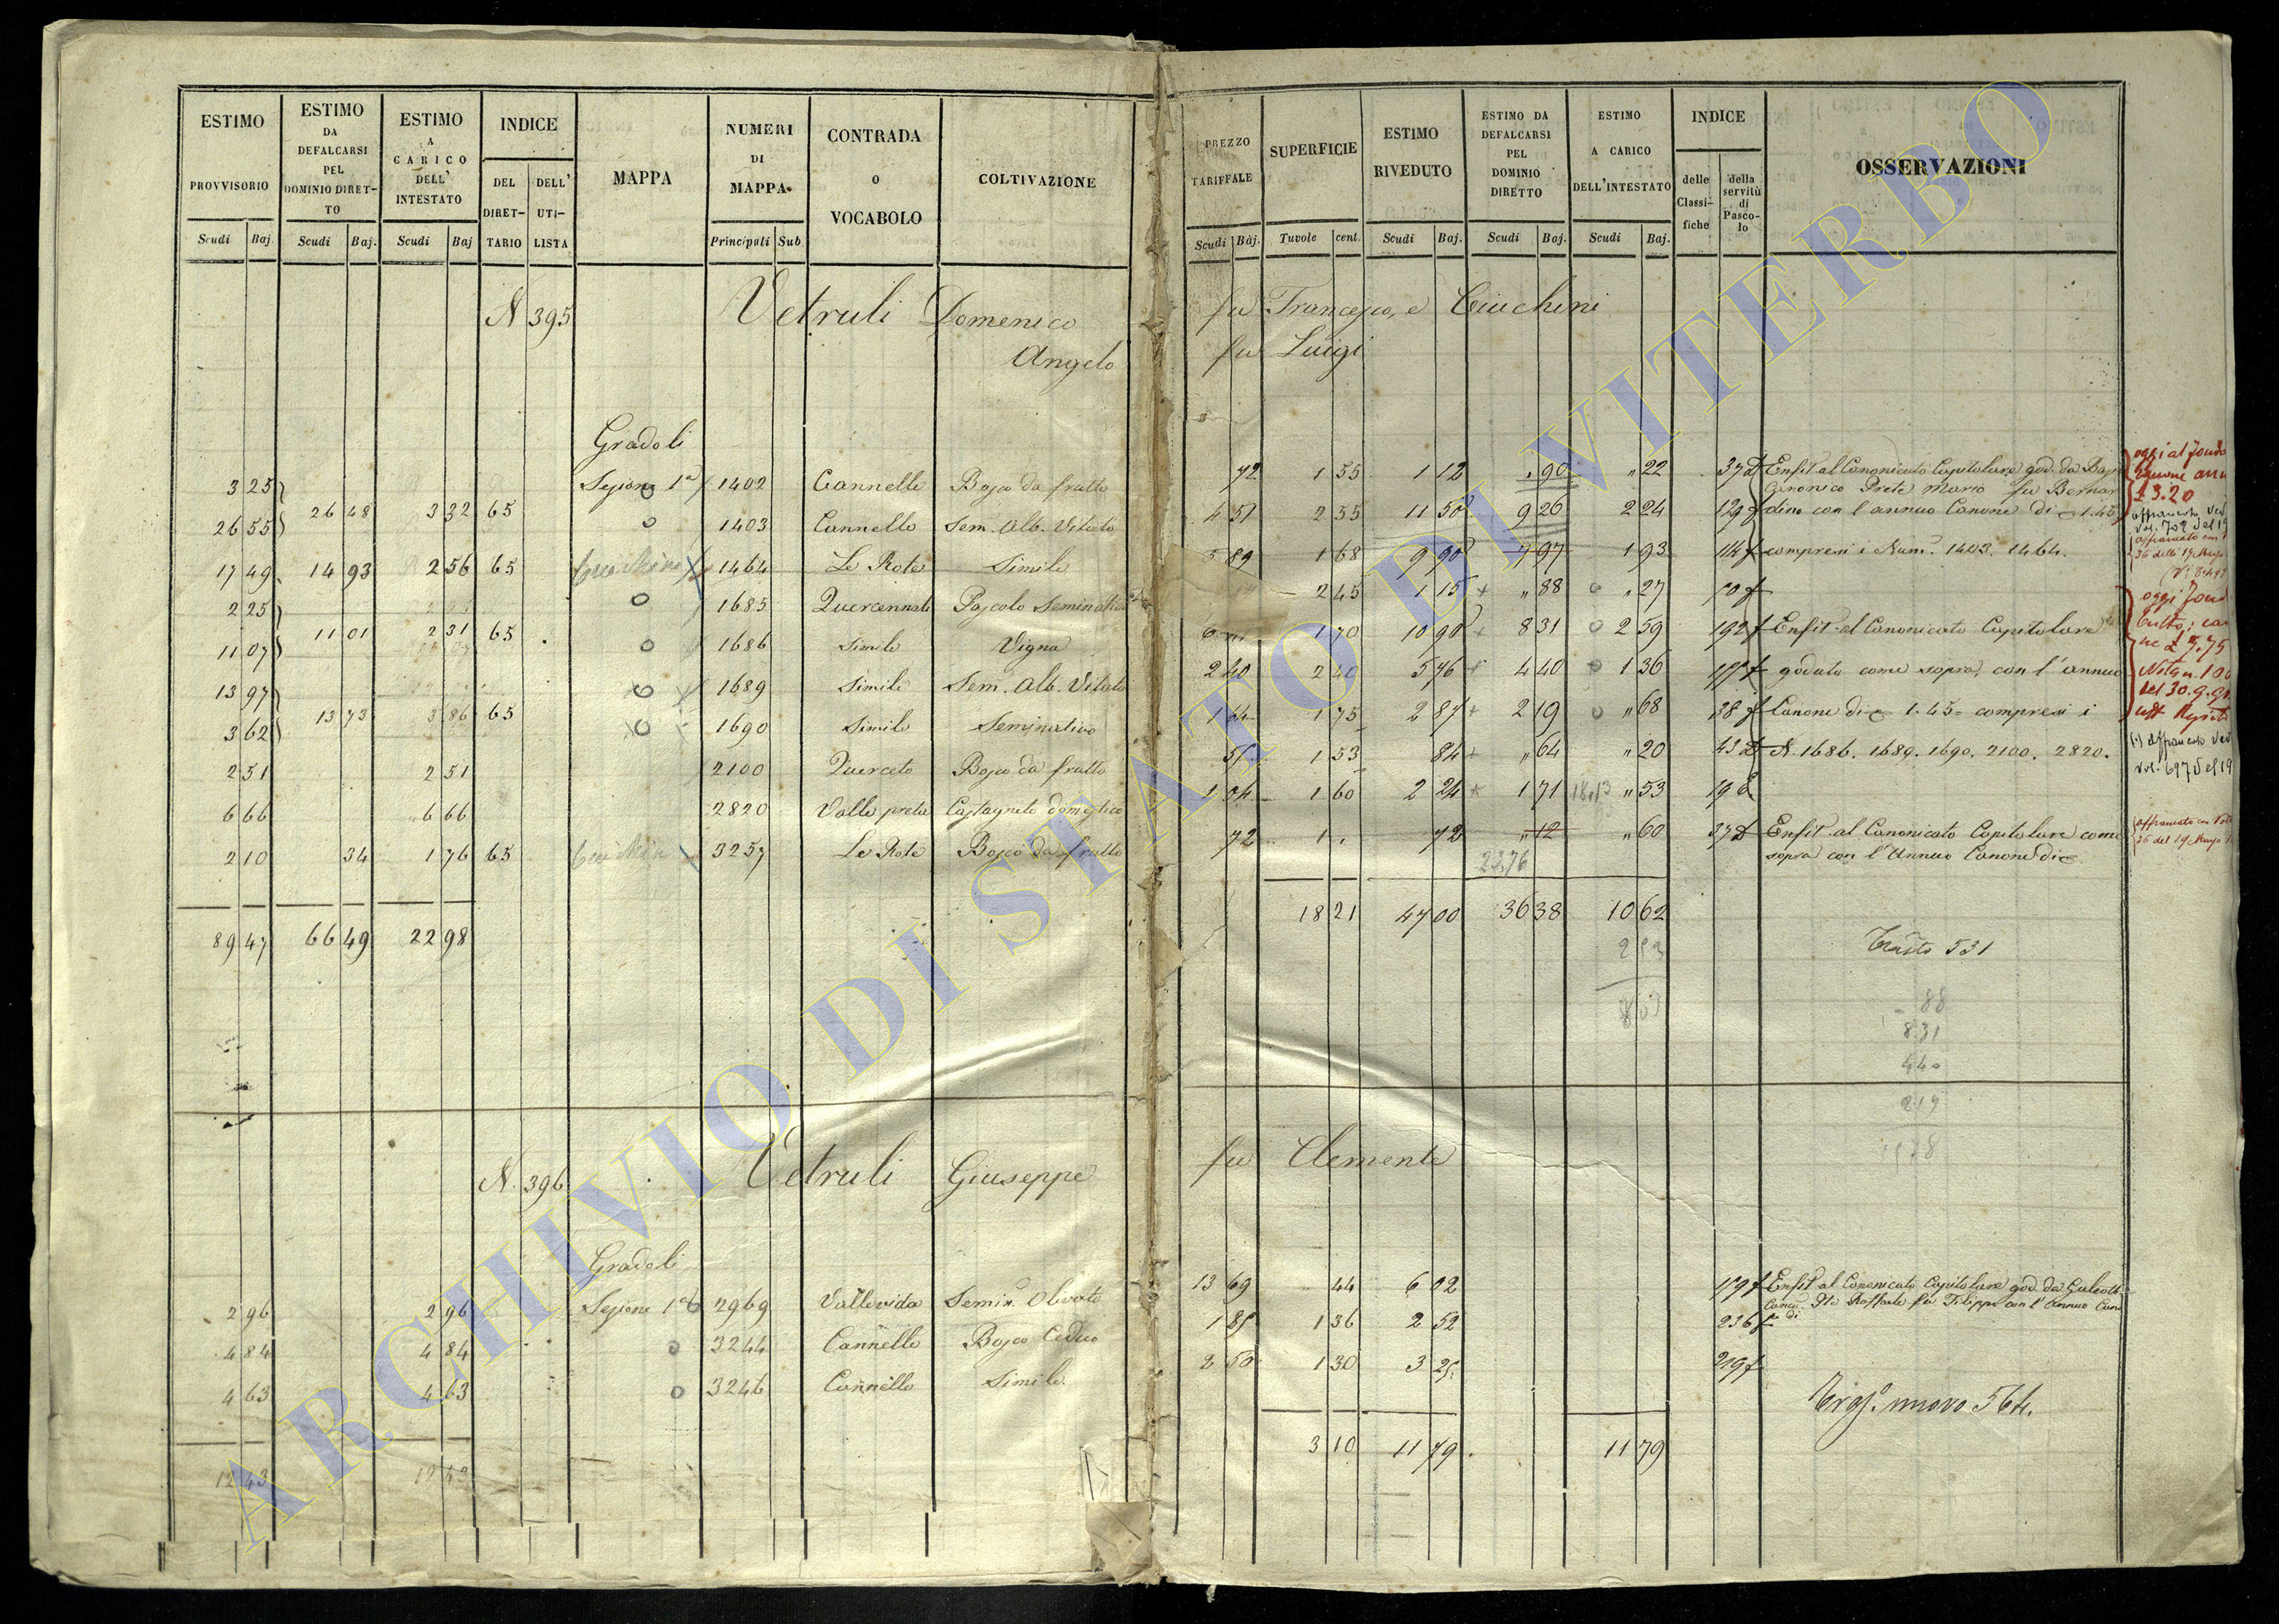 ESTIMO PROVVISORIO | ESTIMO DA DEFALCARSI PEL DOMINIO DIRET-TO | ESTIMO A CARICO DELL' INTESTATO | INDICE DEL DIRET-TARIO | DELL' UTI-LISTA | MAPPA | NUMERI DI MAPPA | CONTRADA O VOCABOLO | COLTIVAZIONE
Scudi Baj. | Scudi Baj. | Scudi Baj | Principali Sub
N 395 Vetruli Domenico
Angelo
Gradoli
3 25 | Sezione 1a | 1402 | Cannelle | Bosco da frutto
26 55 | 26 48 | 3 32 | 65 | 1403 | Cannello | Sem. Alb. Vitato
17 49 | 14 93 | 2 56 | 65 | 1464 | Le Rote | Simile
2 25 | 1685 | Pascolo Seminativo
11 07 | 11 01 | 2 31 | 65 | 1686 | Simile | Vigna
13 97 | 1689 | Simile | Sem. Alb. Vitato
3 62 | 13 73 | 3 86 | 65 | 1690 | Simile | Seminativo
2 51 | 2 51 | 2100 | Querceto | Bosco da frutto
6 66 | 6 66 | 2820 | Valle preta | Castagneto domestico
2 10 | 34 | 1 76 | 65 | 3257 | Le Rote | Bosco da frutto
89 47 | 66 49 | 22 98
N. 396 Vetruli Giuseppe
Gradoli
2 96 | 2 96 | Sezione 1a | 2969 | Vallevida | Semin. Olivato
4 84 | 4 84 | 3244 | Cannello | Bosco Ceduo
4 63 | 4 63 | 3246 | Cannello | Simile
12 43 | 12 43
PREZZO TARIFFALE | SUPERFICIE | ESTIMO RIVEDUTO | ESTIMO DA DEFALCARSI PEL DOMINIO DIRETTO | ESTIMO A CARICO DELL'INTESTATO | INDICE delle Classi-fiche | della servitù di Pasco-lo | OSSERVAZIONI
Scudi Baj. | Tavole cent. | Scudi Baj. | Scudi Baj. | Scudi Baj.
fu Francesco, e Ciuchini
fu Luigi
72 | 1 55 | 1 12 | " 90 | " 22 | 37 | Enfit. al Canonicato Capitolare god. da
Canonico Prete Mario fu Bernar
4 51 | 2 55 | 11 50 | 9 26 | 2 24 | 129 | dino con l'annuo Canone di 1.45
5 89 | 1 68 | 9 90 | 7 97 | 1 93 | 114 | compresi i Num. 1403. 1464.
2 45 | 1 15 | " 88 | " 27
1 70 | 10 90 | 8 31 | 2 59 | 192 | Enfit. al Canonicato Capitolare
2 40 | 2 40 | 5 76 | 4 40 | 1 36 | goduto come sopra, con l'annuo
1 64 | 1 75 | 2 87 | 2 19 | " 68 | 38 | Canone di 1.45 compresi i
1 53 | 84 | " 64 | " 20 | 43 | N. 1686. 1689. 1690. 2100. 2820.
1 60 | 2 24 | 1 71 | 18.13 | " 53 | 19
72 | 1 " | 72 | " 12 | " 60 | 37 | Enfit. al Canonicato Capitolare come
23.76 | sopra con l'Annuo Canone di
18 21 | 47 00 | 36 38 | 10 62
oggi al fondo
£ 3.20
oggi
Culto;
Nota n. 100
del 30.9.
affrancato
vol. 697 del 19
affrancato
36 del 19 Maggio
531
88
8 31
4 40
2 19
fu Clemente
13 69 | 44 | 6 02 | 179 | Enfit. al Canonicato Capitolare god. da
Raffaele fu Filippo con l'Annuo Cano
ne di
1 85 | 1 36 | 2 52 | 236
2 50 | 1 30 | 3 25 | 219
nuovo 564.
3 10 | 11 79 | 11 79
ARCHIVIO DI STATO DI VITERBO